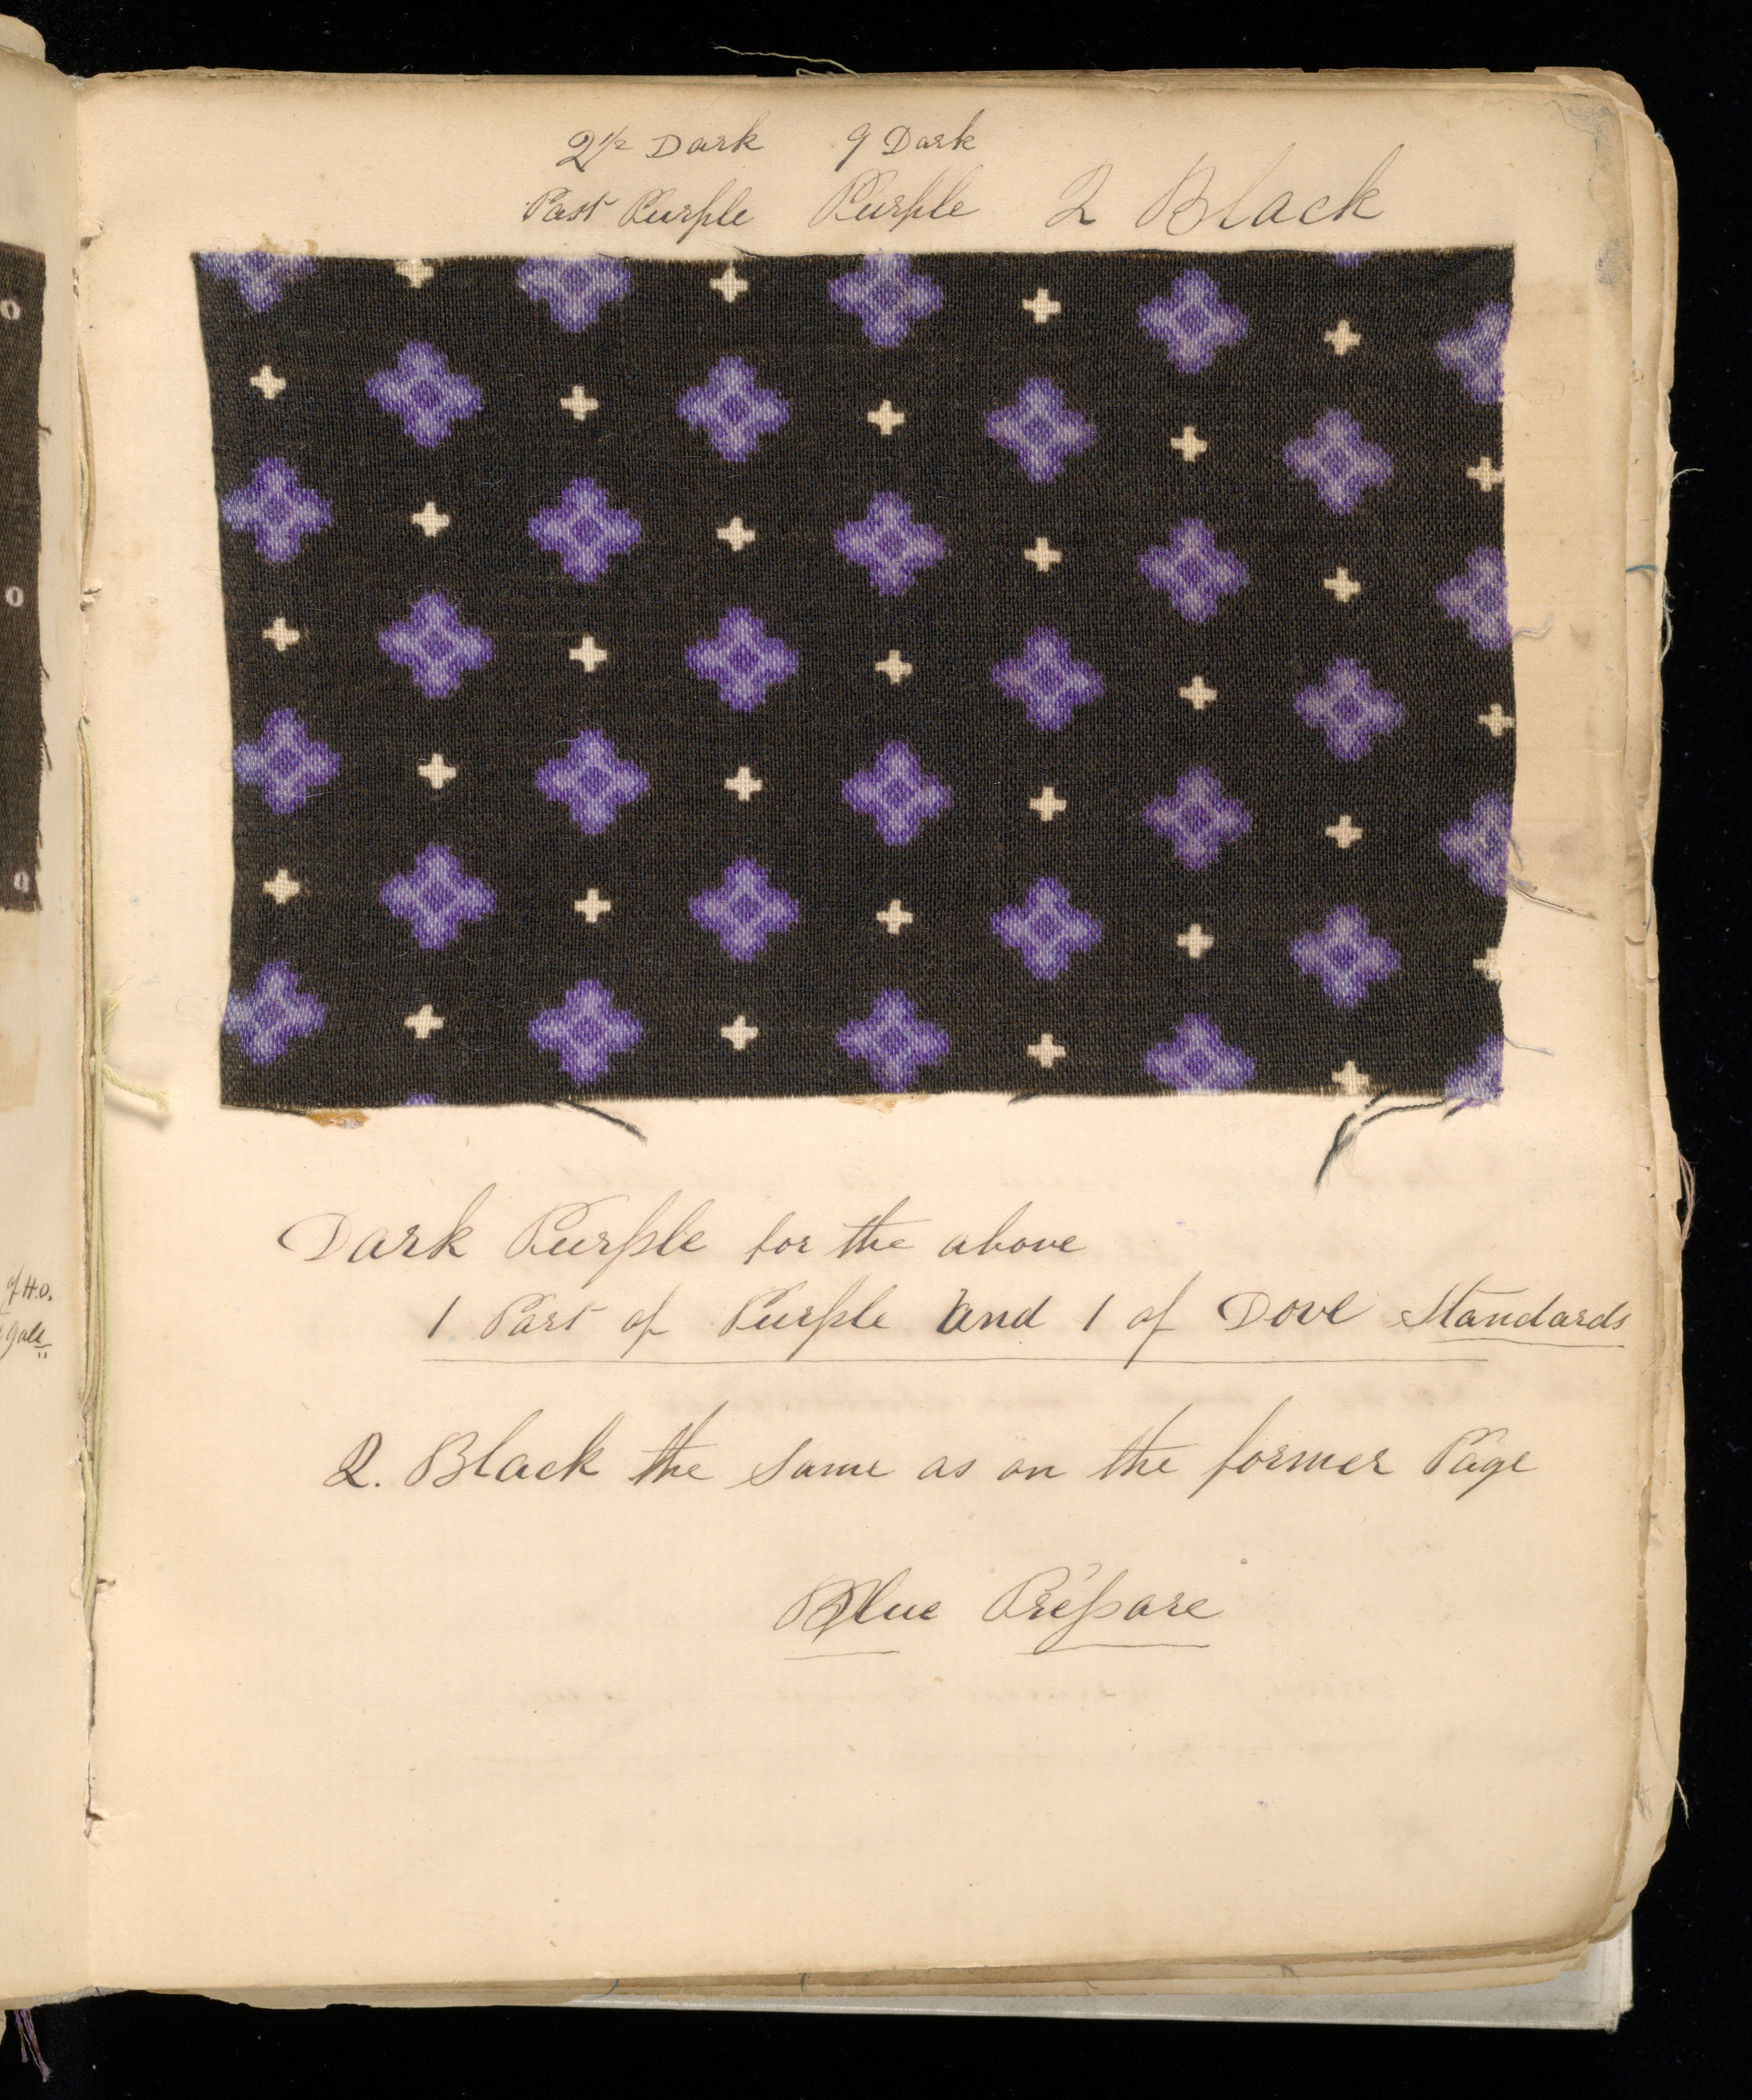 2 1/2 Dark 9 Dark
Past Purple Purple 2 Black
Dark Purple for the above
1 Part of Purple and 1 of Dove Standards
2. Black the same as on the former Page
Blue Prepare
of H.O.
gals